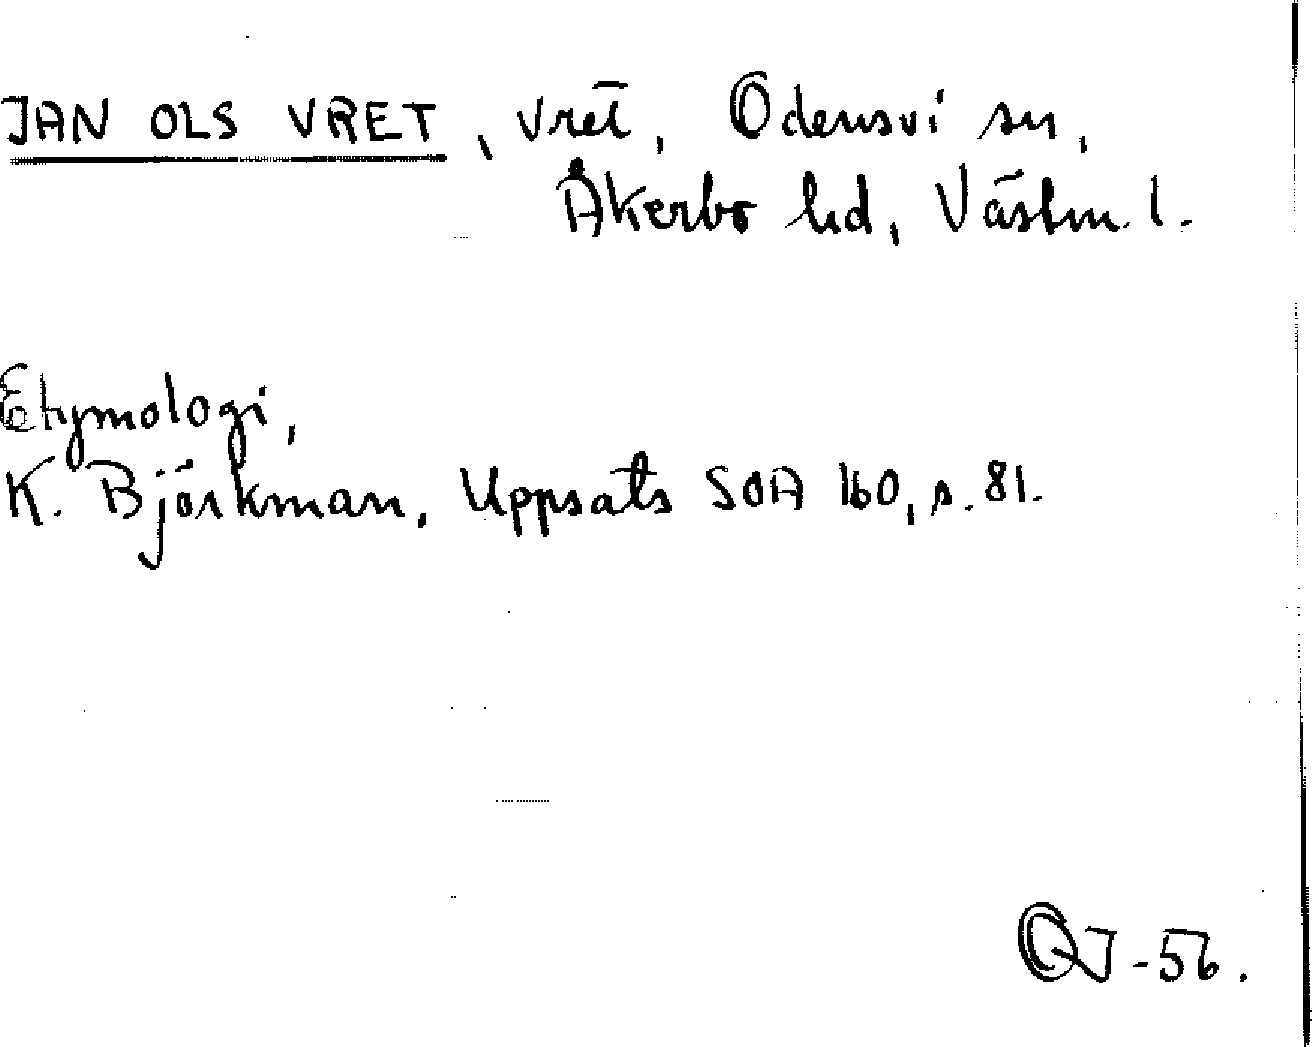 JAN OLS VRET, vret, Odensvi sn,
Åkerbo hd, Västm. l.
Etymologi,
K. Björkman, Uppsats SOA 160, s. 81.
QJ-56.